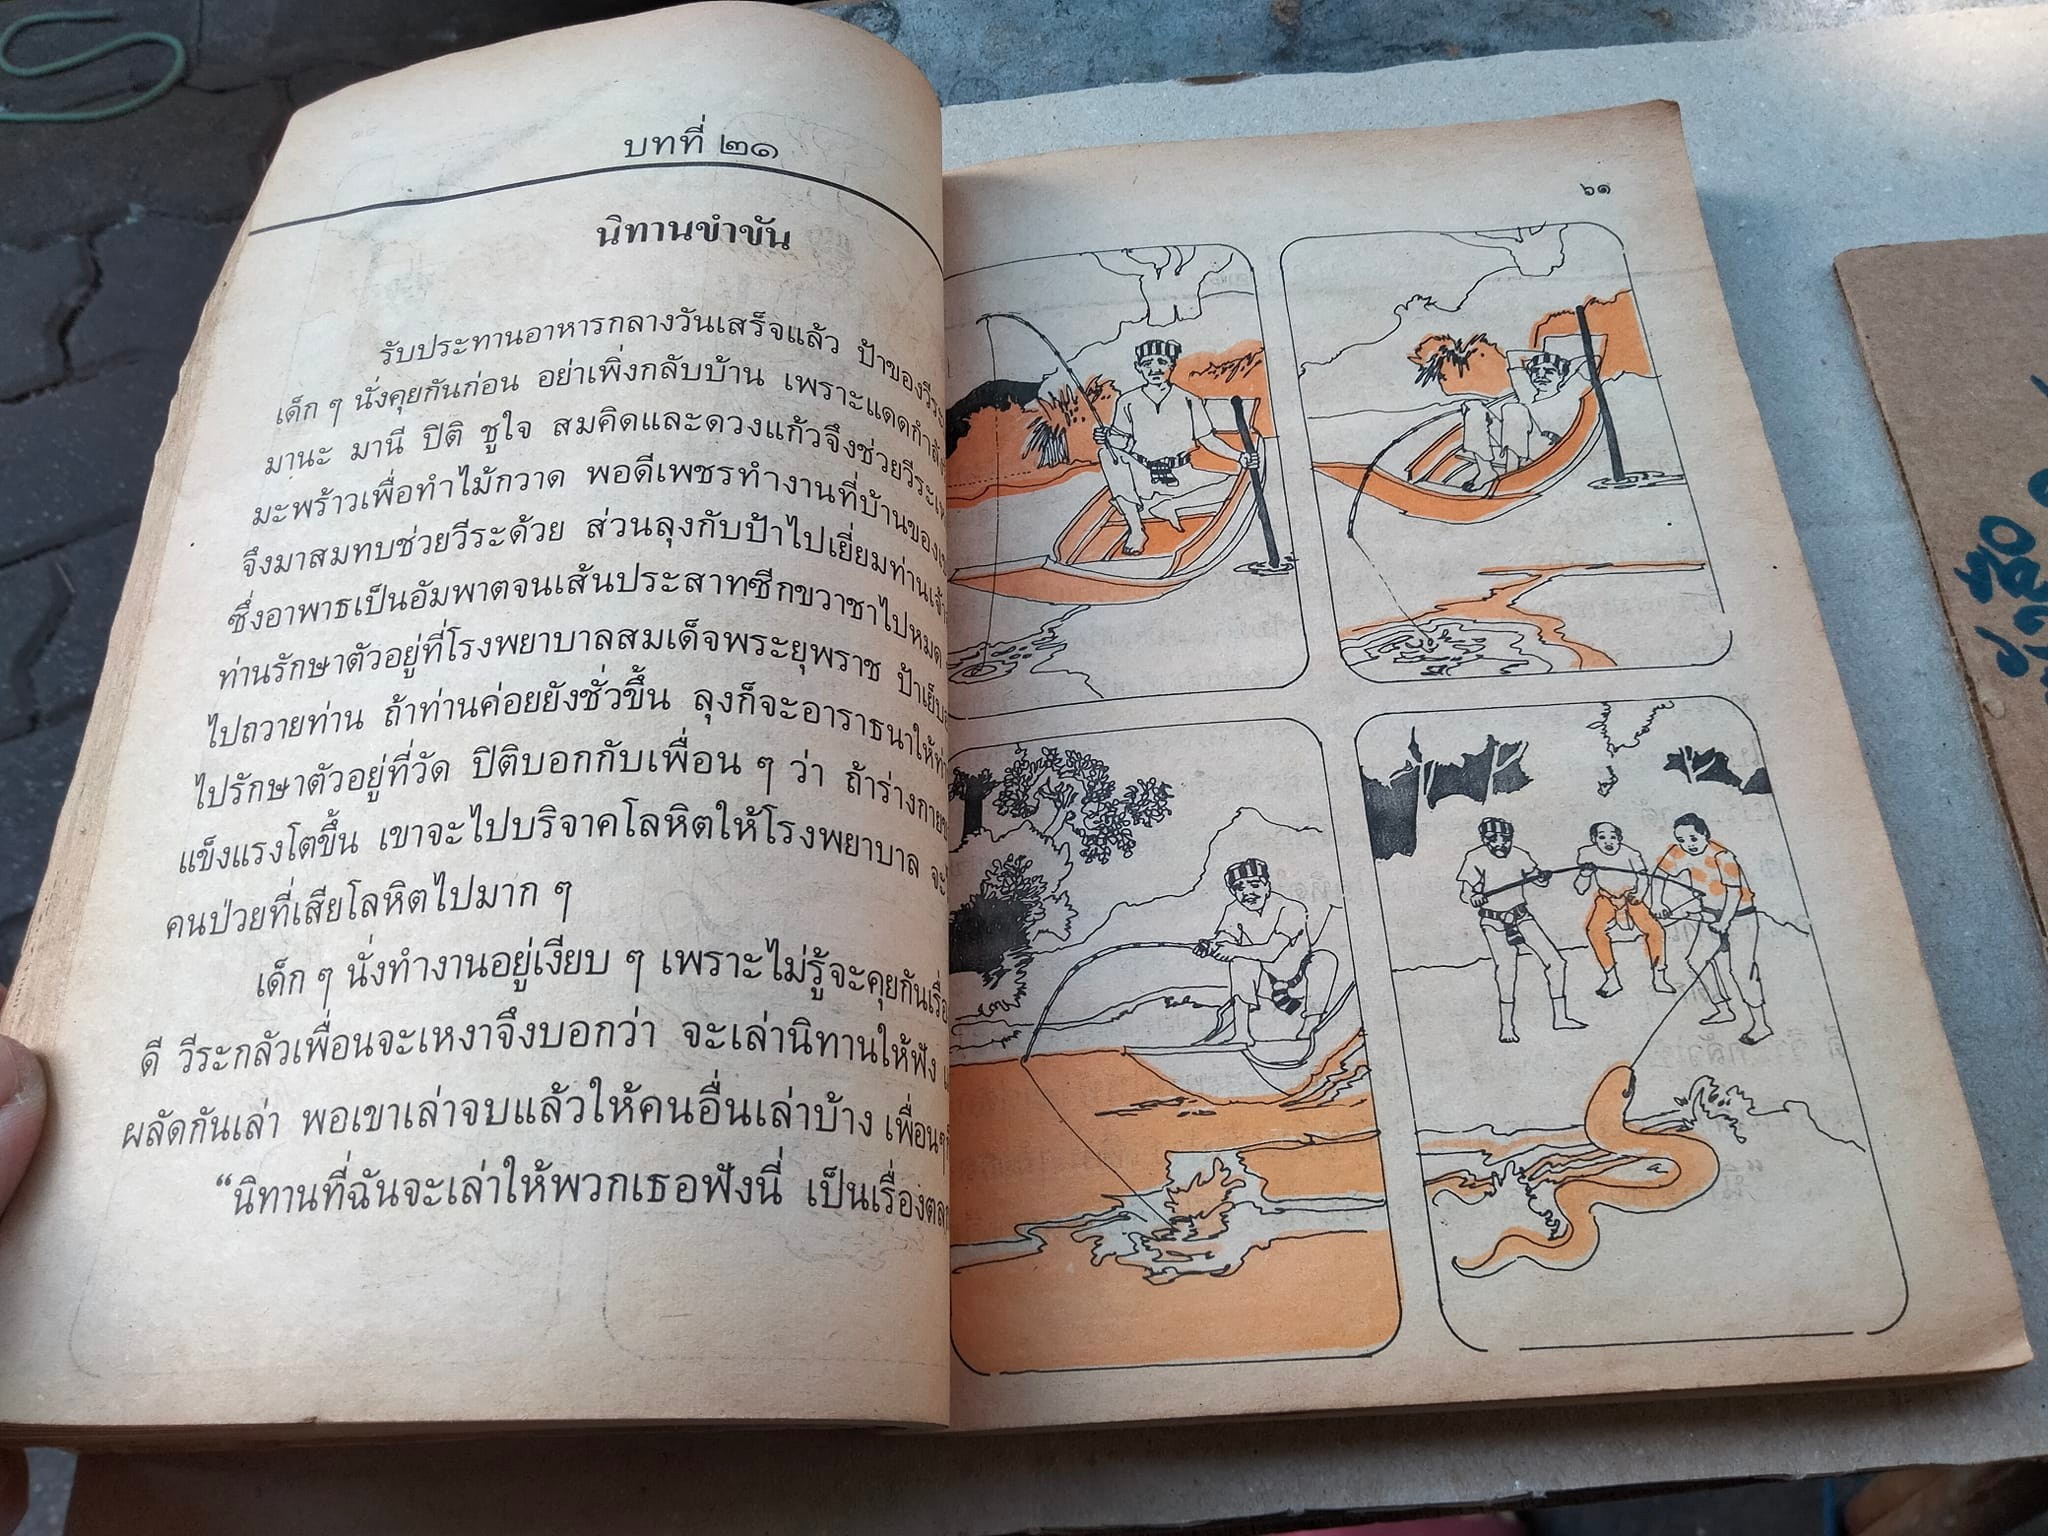 บทที่ ๒๑
นิทานขำขัน
รับประทานอาหารกลางวันเสร็จแล้ว ป้าของวีระ
เด็ก ๆ นั่งคุยกันก่อน อย่าเพิ่งกลับบ้าน เพราะแดดกำลัง
มานะ มานี ปิติ ชูใจ สมคิดและดวงแก้วจึงช่วยวีระ
มะพร้าวเพื่อทำไม้กวาด พอดีเพชรทำงานที่บ้านของ
จึงมาสมทบช่วยวีระด้วย ส่วนลุงกับป้าไปเยี่ยมท่านเจ้า
ซึ่งอาพาธเป็นอัมพาตจนเส้นประสาทซีกขวาชาไปหมด
ท่านรักษาตัวอยู่ที่โรงพยาบาลสมเด็จพระยุพราช ป้าเย็บ
ไปถวายท่าน ถ้าท่านค่อยยังชั่วขึ้น ลุงก็จะอาราธนาให้
ไปรักษาตัวอยู่ที่วัด ปิติบอกกับเพื่อน ๆ ว่า ถ้าร่างกาย
แข็งแรงโตขึ้น เขาจะไปบริจาคโลหิตให้โรงพยาบาล
คนป่วยที่เสียโลหิตไปมาก ๆ
เด็ก ๆ นั่งทำงานอยู่เงียบ ๆ เพราะไม่รู้จะคุยกันเรื่อ
ดี วีระกลัวเพื่อนจะเหงาจึงบอกว่า จะเล่านิทานให้ฟัง
ผลัดกันเล่า พอเขาเล่าจบแล้วให้คนอื่นเล่าบ้าง เพื่อนๆ
“นิทานที่ฉันจะเล่าให้พวกเธอฟังนี่ เป็นเรื่องตล
๖๑